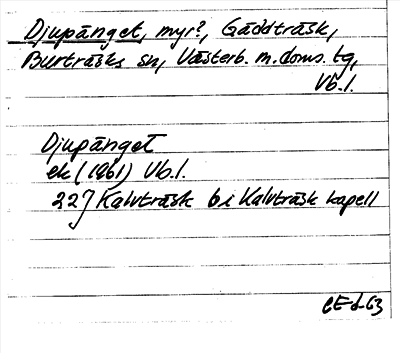 Djupänget, myr?, Gäddträsk,
Burträsks sn, Västerb. m. doms. tg,
Vb. l.
Djupänget
ek (1961) Vb. l.
22J Kalvträsk b i Kalvträsk kapell
CE-d-63